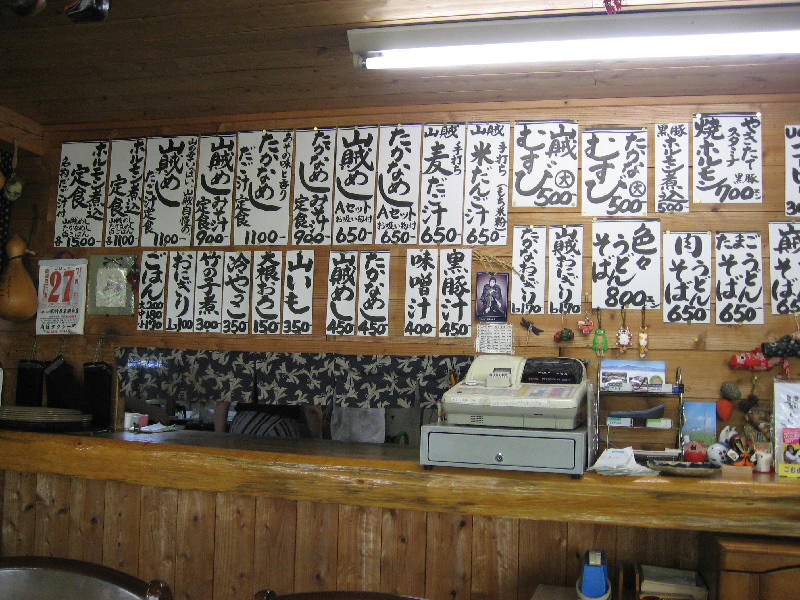 ホルモン煮込
定食
¥1500
ホルモン煮込
定食
¥1100
だご汁定食
1100
山賊めし
定食
900
たかなめし
だご汁
定食
1100
たかなめし
みそ汁
定食
900
山賊めし
Aセット
お吸い物付
650
たかなめし
Aセット
お吸い物付
650
山賊
手打ち
麦だご汁
650
山賊
手打ち
米だんご汁
650
山賊
むすび
大
500
たかな
むすび
大
500
黒豚
ホルモン煮込
500
やきたて
スタミナ
黒豚
焼ホルモン
700
ごはん
おにぎり
100
竹の子煮
300
冷やっこ
350
大根おろし
150
山いも
350
山賊めし
450
たかなめし
450
味噌汁
400
黒豚汁
450
たかなおにぎり
190
山賊おにぎり
190
色々
うどん
そば
800
肉うどん
そば
650
たまごうどん
そば
650
27